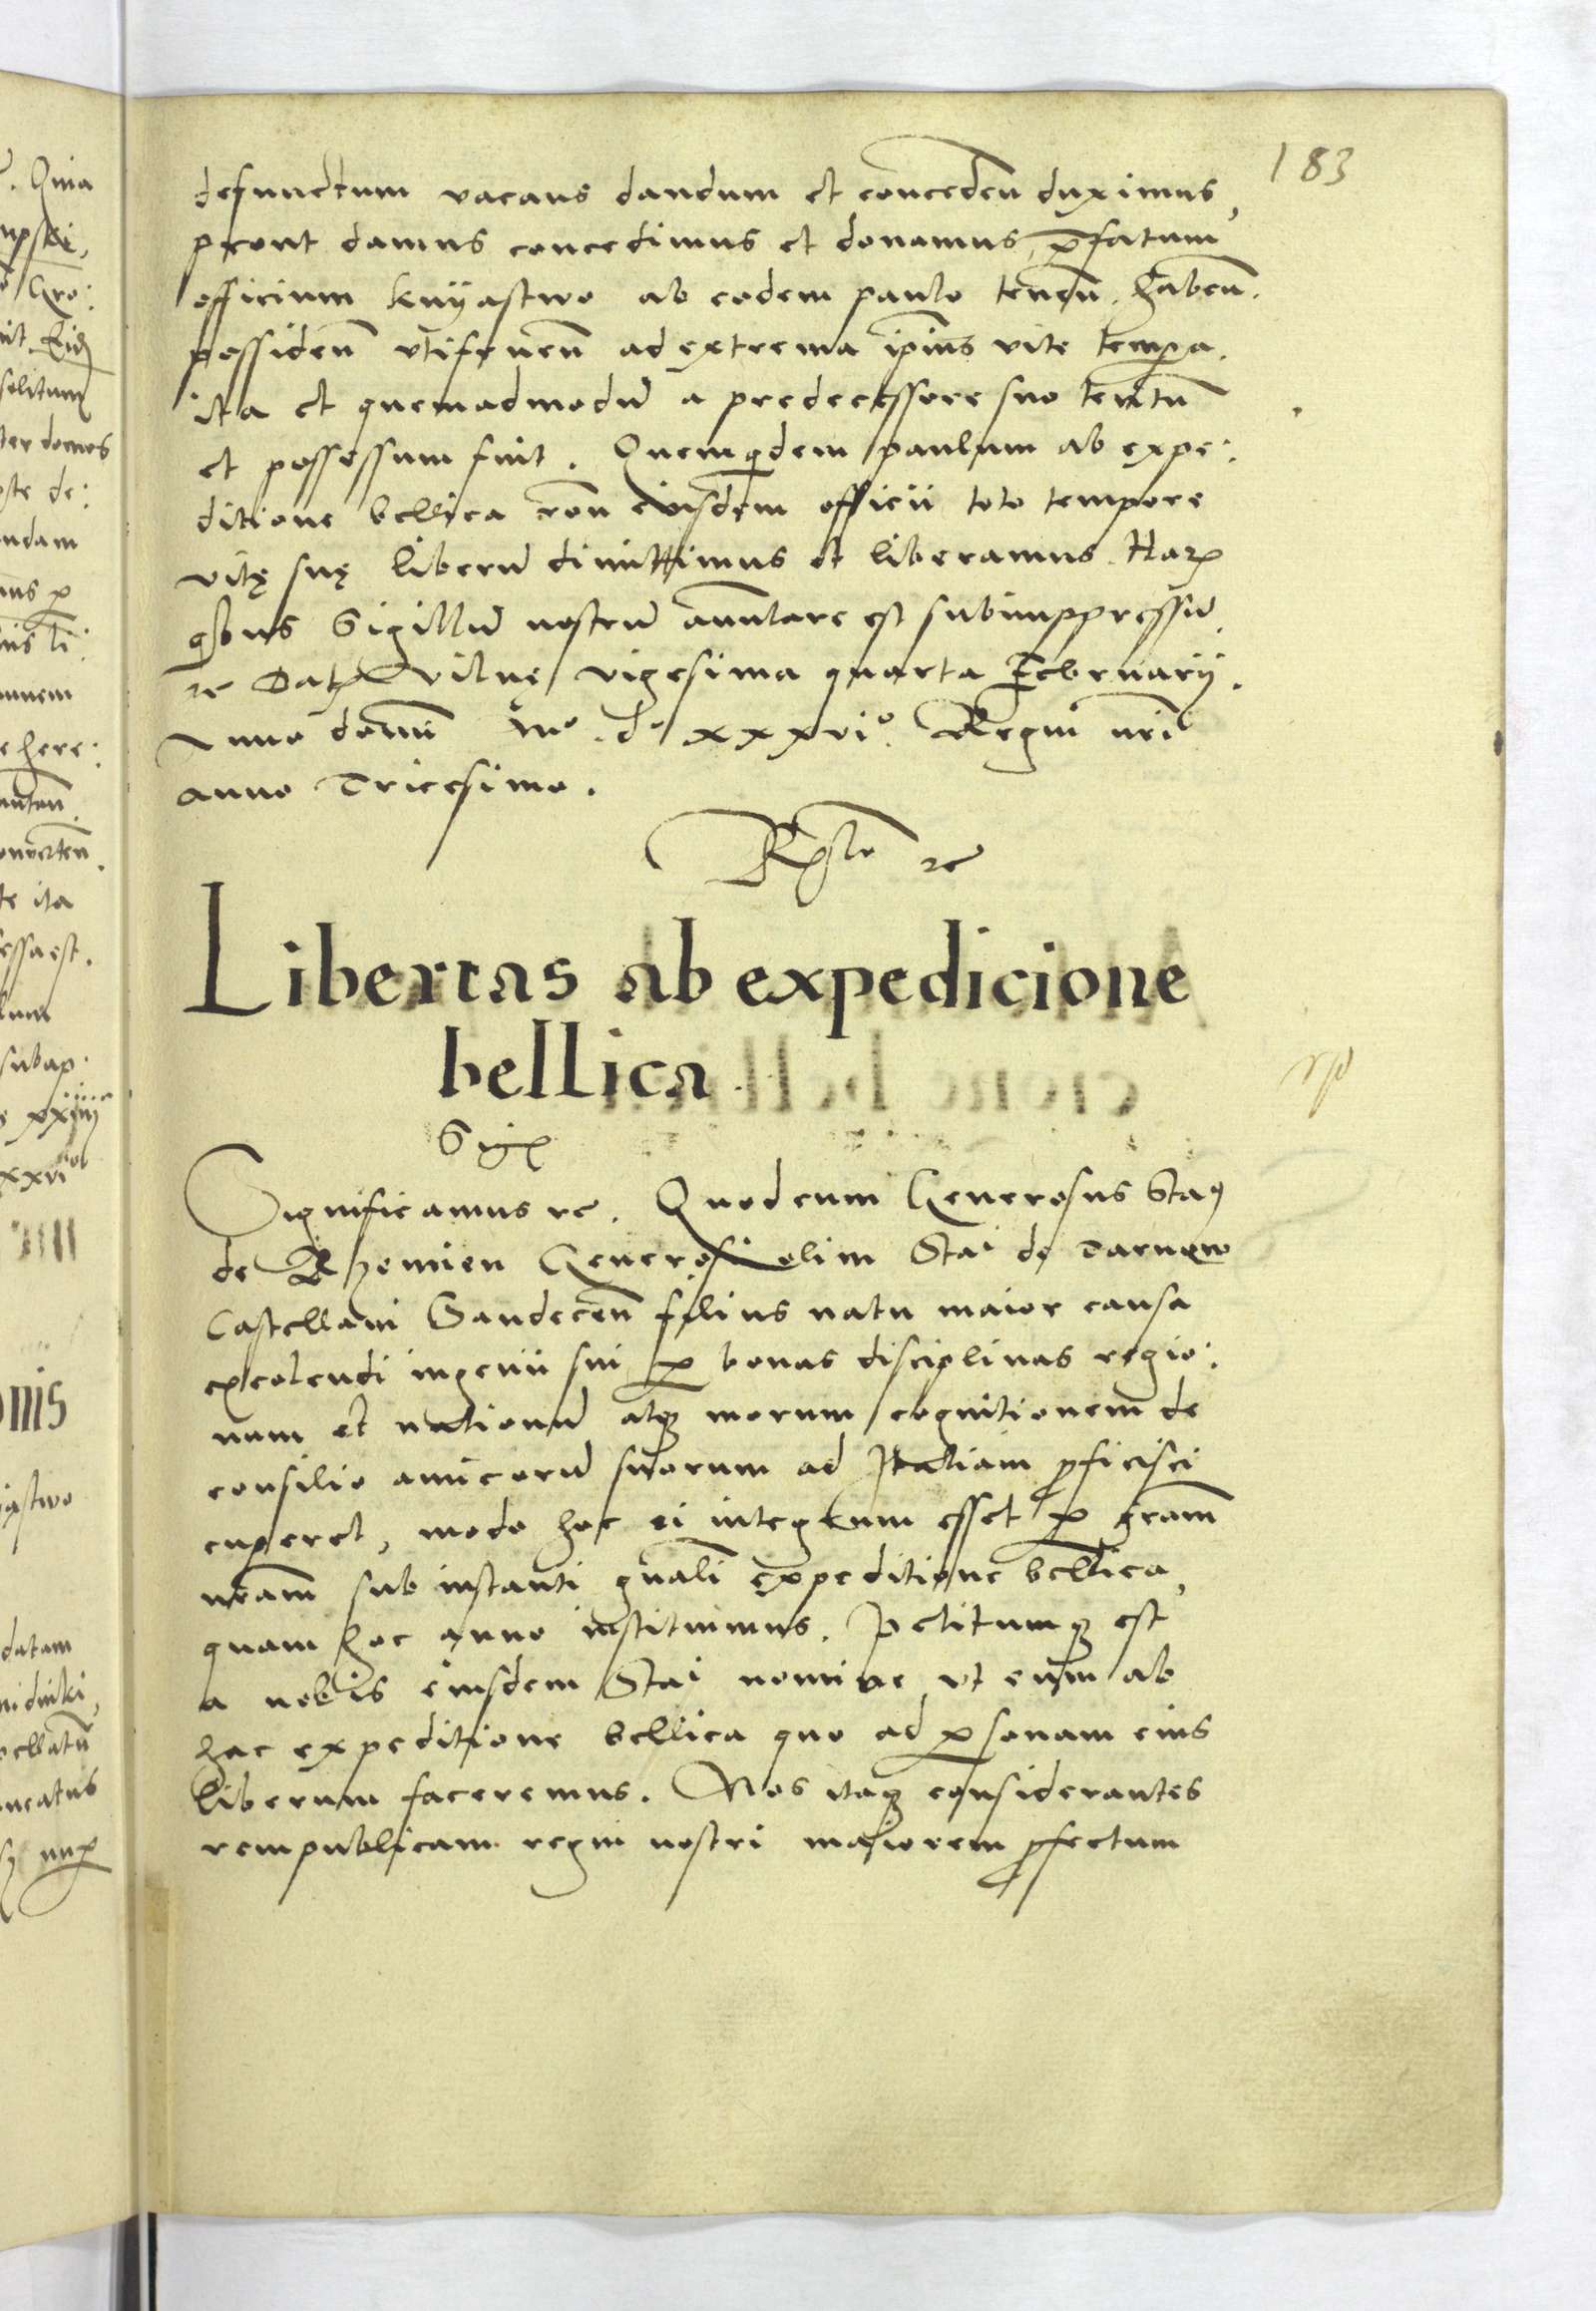 183
defunctum vacans dandum et conceden̄ duximus,
prout damus concedimus et donamus, p̄fatum
officium knyastwo ab eodem paulo tenen̄. haben̄.
possiden̄ utifruen̄ ad extrema ip̄ius vite temp̄a.
ita et quemadmodū a predecessore suo tentū
et possessum fuit. Quemq̄dem paulum ab expe:
ditione bellica ron̄e eiusdem officii toto tempore
vitę suę liberū dimittimus et liberamus. Harꝫ
q̄bus Sigillū nostrū annulare est subimppressū.
ꝛc Datꝫ Vilne vigesima quarta Februarij.
Anno domī mº. dº xxxviº. Regni nr̄i
anno Tricesimo.
Rꝓlo ꝛc
Libertas ab expedicione
bellica.
Sigꝫ
Significamus ꝛc. Quod cum Generosus Staꝰ
de Rzemien Generosi olim Stai de Tarnow
Castellani Sandecen̄ filius natu maior causa
excolendi ingenii sui ꝑ bonas disciplinas regio:
num et nationū atqꝫ morum cognitionem de
consilio amicorū suorum ad Italiam ꝓficisci
cuperet, modo hoc ei integrum esset ꝑ gr̄am
nr̄am sub instanti gn̄ali expeditione bellica,
quam hoc anno instituimus. Petitumqꝫ est
a nobis eiusdem Stai nomine ut eum ab
hac expeditione bellica quo ad ꝑsonam eius
liberum faceremus. Nos itaqꝫ considerantes
rempublicam regni nostri maiorem ꝓfectum